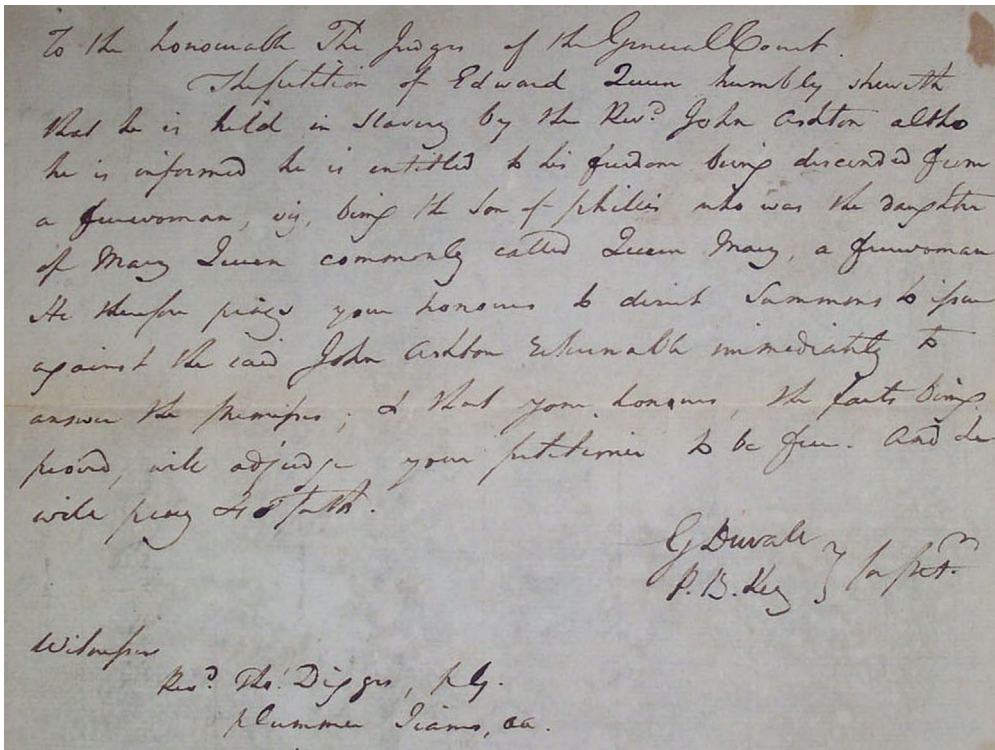 To the honourable The Judges of the General Court.
The petition of Edward Queen humbly sheweth
that he is held in Slavery by the Revd. John Ashton altho
he is informed he is entitled to his freedom being descended from
a freewoman, viz, being the Son of Phillis who was the daughter
of Mary Queen commonly called Queen Mary, a freewoman
He therefore prays your honours to direct Summons to issue
against the said John Ashton returnable immediately to
answer the premises; & that your honours, the facts being
proved, will adjudge your petitioner to be free. And he
will pray &
G Duvall
P. B. Key } for petr.
Witnesses
Revd. Thos. Digges, pg.
Plummer Iiams, aa.